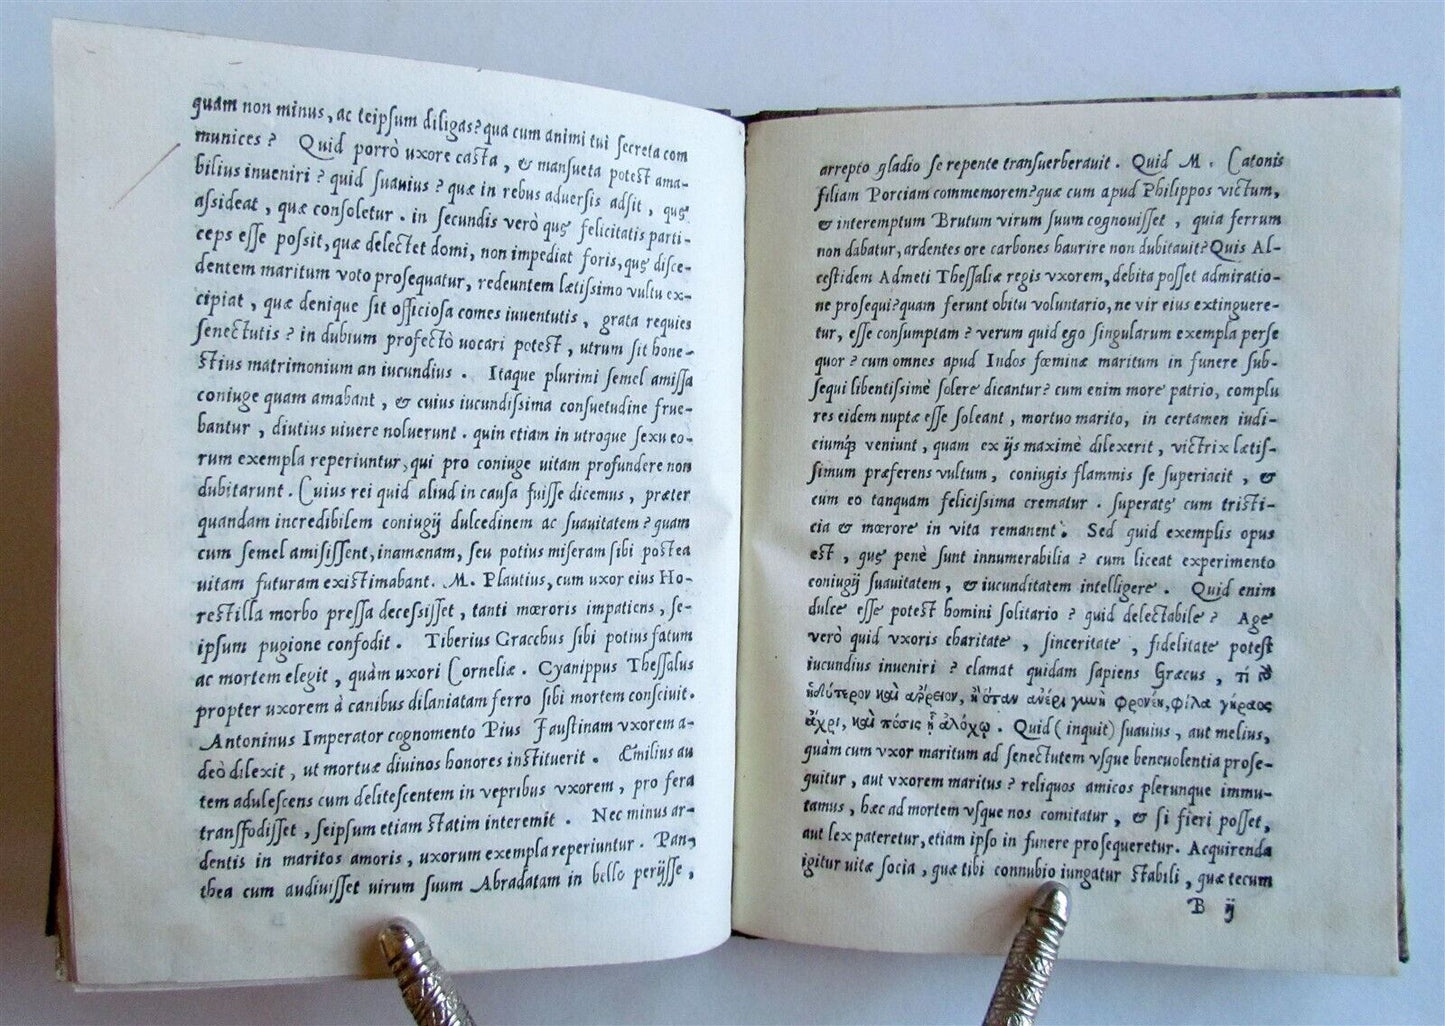 quàm non minus, ac teipſum diligas? qua cum animi tui ſecreta com
munices ? Quid porrò uxore caſta , & manſueta poteſt ama-
bilius inueniri ? quid ſuauius ? quæ in rebus aduerſis adſit , quę
aſsideat , quæ conſoletur . in ſecundis verò quę felicitatis parti-
ceps eſſe poſsit, quæ delectet domi, non impediat foris, quę diſce-
dentem maritum voto proſequatur, redeuntem lætiſsimo vultu ex-
cipiat , quæ denique ſit officioſa comes iuuentutis , grata requies
ſenectutis ? in dubium profectò uocari poteſt , utrum ſit hone-
ſtius matrimonium an iucundius . Itaque plurimi ſemel amiſſa
coniuge quam amabant , & cuius iucundiſsima conſuetudine frue-
bantur , diutius uiuere noluerunt . quin etiam in utroque ſexu eo-
rum exempla reperiuntur, qui pro coniuge uitam profundere non
dubitarunt . Cuius rei quid aliud in cauſa fuiſſe dicemus , præter
quandam incredibilem coniugij dulcedinem ac ſuauitatem ? quam
cum ſemel amiſiſſent, inamænam, ſeu potius miſeram ſibi poſtea
uitam futuram exiſtimabant. M. Plautius, cum uxor eius Ho-
reſtilla morbo preſſa deceſsiſſet , tanti mœroris impatiens , ſe-
ipſum pugione confodit . Tiberius Gracchus ſibi potius fatum
ac mortem elegit , quàm uxori Corneliæ . Cyanippus Theſſalus
propter uxorem à canibus dilaniatam ferro ſibi mortem conſciuit.
Antoninus Imperator cognomento Pius Fauſtinam vxorem a-
deò dilexit , ut mortuæ diuinos honores inſtituerit . Æmilius au
tem adulescens cum deliteſcentem in vepribus vxorem , pro fera
tranſfodiſſet , ſeipſum etiam ſtatim interemit . Nec minus ar-
dentis in maritos amoris , uxorum exempla reperiuntur . Pan-
thea cum audiuiſſet uirum ſuum Abradatam in bello perijſſe ,
arrepto gladio ſe repente tranſuerberauit . Quid M. Catonis
filiam Porciam commemorem? quæ cum apud Philippos victum,
& interemptum Brutum virum ſuum cognouiſſet , quia ferrum
non dabatur, ardentes ore carbones haurire non dubitauit? Quis Al-
ceſtidem Admeti Theſſaliæ regis vxorem, debita poſſet admiratio-
ne proſequi? quam ferunt obitu voluntario, ne vir eius extinguere-
tur, eſſe conſumptam ? verum quid ego ſingularum exempla perſe
quor ? cum omnes apud Indos fœminæ maritum in funere ſub-
ſequi libentiſsimè ſolere dicantur? cum enim more patrio, complu
res eidem nuptæ eſſe ſoleant , mortuo marito, in certamen iudi-
ciumq́ veniunt , quam ex ijs maximè dilexerit , victrix lætiſ-
ſimum præferens vultum , coniugis flammis ſe ſuperiacit , &
cum eo tanquam feliciſsima crematur . ſuperatę cum triſti-
cia & mœrore in vita remanent . Sed quid exemplis opus
eſt , quę penè ſunt innumerabilia ? cum liceat experimento
coniugij ſuauitatem , & iucunditatem intelligere . Quid enim
dulce eſſe poteſt homini ſolitario ? quid delectabile ? Age
verò quid vxoris charitate , ſinceritate , fidelitate poteſt
iucundius inueniri ? clamat quidam ſapiens Græcus , τί δὲ
ἡδύτερον καὶ ἄρρειον, ἢ ὅταν ἀνέρι γυνὴ φρονέῃ, φίλα γήραος
ἄχρι, καὶ πόσις ᾗ ἀλόχῳ . Quid ( inquit) ſuauius , aut melius,
quàm cum vxor maritum ad ſenectutem vſque beneuolentia proſe-
quitur , aut vxorem maritus ? reliquos amicos plerunque immu-
tamus , hæc ad mortem vſque nos comitatur , & ſi fieri poſſet,
aut lex pateretur, etiam ipſo in funere proſequeretur. Acquirenda
igitur uitæ ſocia , quæ tibi connubio iungatur ſtabili , quæ tecum
B ij